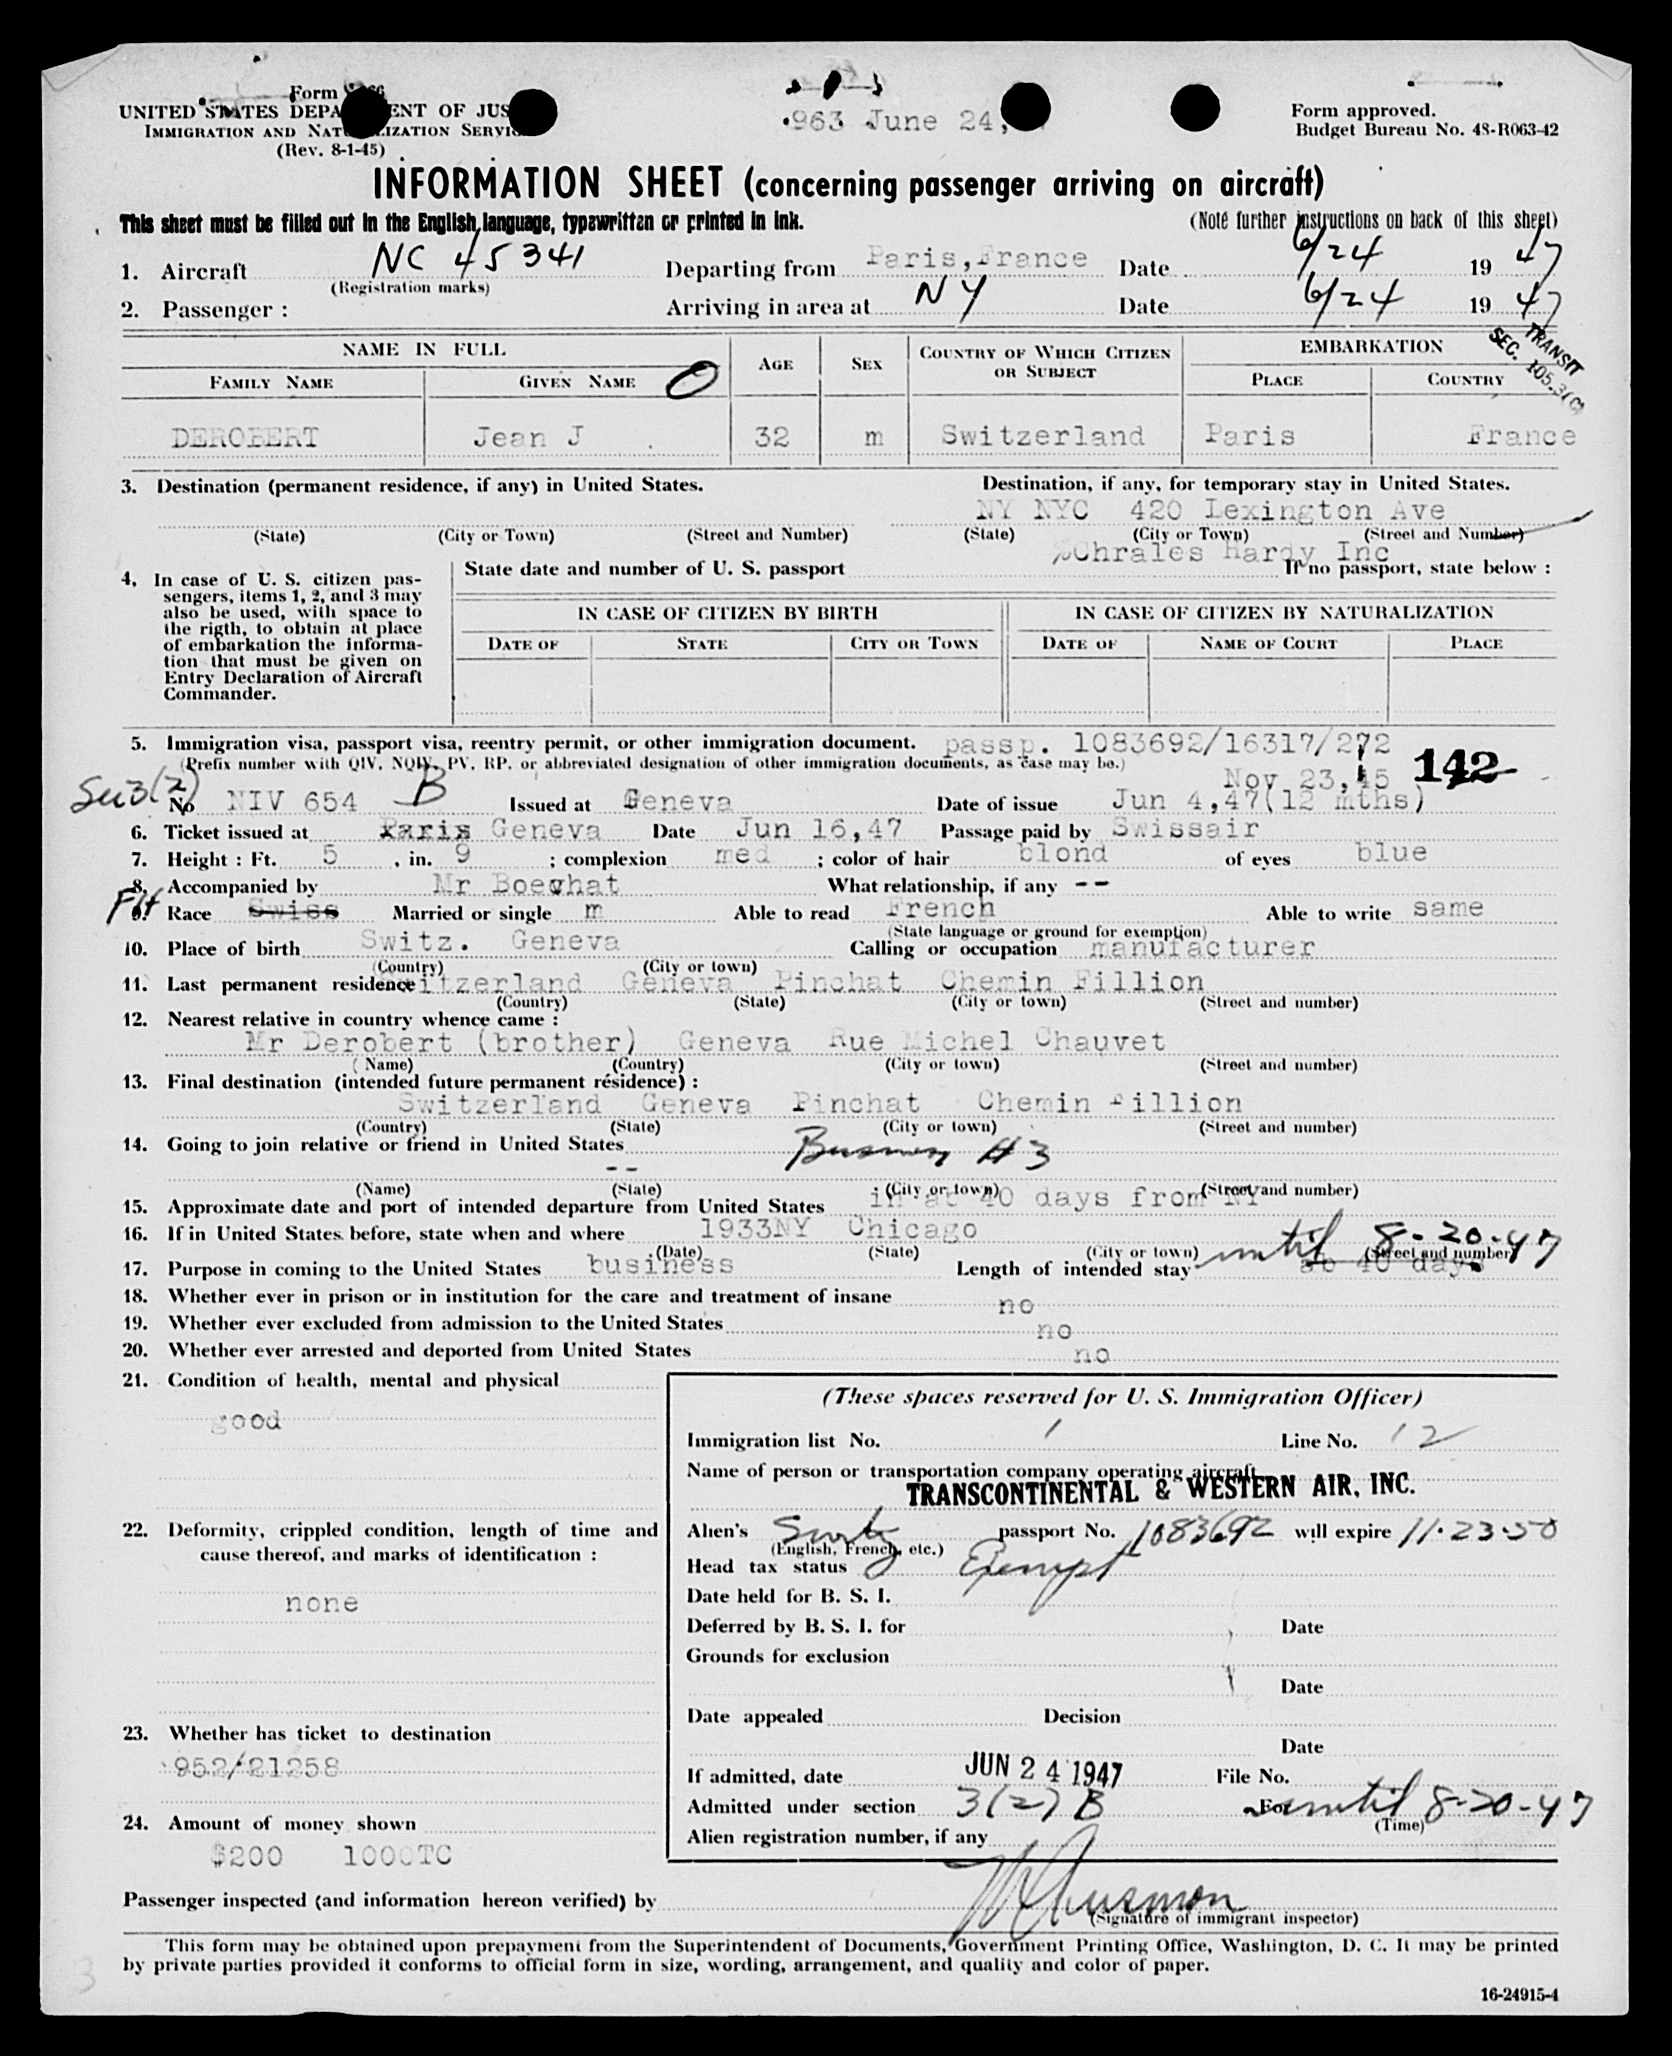 Form
UNITED STATES DEPA ENT OF JUS
IMMIGRATION AND NAT LIZATION SERVI
(Rev. 8-1-45)
963 June 24,
Form approved.
Budget Bureau No. 43-R063-42
INFORMATION SHEET (concerning passenger arriving on aircraft)
This sheet must be filled out in the English language, typewritten or printed in ink.
(Note further instructions on back of this sheet)
1. Aircraft NC 45341 Departing from Paris, France Date 6/24 19 47
(Registration marks)
2. Passenger : Arriving in area at NY Date 6/24 19 47
TRANSIT
SEC. 105.3(C)
NAME IN FULL AGE SEX COUNTRY OF WHICH CITIZEN OR SUBJECT EMBARKATION
FAMILY NAME GIVEN NAME O PLACE COUNTRY
DEROBERT Jean J 32 m Switzerland Paris France
3. Destination (permanent residence, if any) in United States. Destination, if any, for temporary stay in United States.
NY NYC 420 Lexington Ave
(State) (City or Town) (Street and Number) (State) (City or Town) (Street and Number)
%Chrales Hardy Inc
4. In case of U. S. citizen pas-
sengers, items 1, 2, and 3 may
also be used, with space to
the rigth, to obtain at place
of embarkation the informa-
tion that must be given on
Entry Declaration of Aircraft
Commander.
State date and number of U. S. passport If no passport, state below :
IN CASE OF CITIZEN BY BIRTH IN CASE OF CITIZEN BY NATURALIZATION
DATE OF STATE CITY OR TOWN DATE OF NAME OF COURT PLACE
5. Immigration visa, passport visa, reentry permit, or other immigration document. passp. 1083692/16317/272
(Prefix number with QIV, NQIV, PV, RP, or abbreviated designation of other immigration documents, as case may be.)
Nov 23,45 142
Sec 3(2) No NIV 654 B Issued at Geneva Date of issue Jun 4,47(12 mths)
6. Ticket issued at Paris Geneva Date Jun 16,47 Passage paid by Swissair
7. Height : Ft. 5 , in. 9 ; complexion med ; color of hair blond of eyes blue
8. Accompanied by Mr Boechat What relationship, if any --
9. Race Swiss Married or single m Able to read French Able to write same
(State language or ground for exemption)
10. Place of birth Switz. Geneva Calling or occupation manufacturer
(Country) (City or town)
11. Last permanent residence Switzerland Geneva Pinchat Chemin Fillion
(Country) (State) (City or town) (Street and number)
12. Nearest relative in country whence came :
Mr Derobert (brother) Geneva Rue Michel Chauvet
(Name) (Country) (City or town) (Street and number)
13. Final destination (intended future permanent résidence) :
Switzerland Geneva Pinchat Chemin Fillion
(Country) (State) (City or town) (Street and number)
14. Going to join relative or friend in United States Business #3
--
(Name) (State) (City or town) (Street and number)
15. Approximate date and port of intended departure from United States in ab 40 days from NY
16. If in United States before, state when and where 1933NY Chicago
(Date) (State) (City or town) (Street and number)
until 8-20-47
17. Purpose in coming to the United States business Length of intended stay ab 40 days
18. Whether ever in prison or in institution for the care and treatment of insane no
19. Whether ever excluded from admission to the United States no
20. Whether ever arrested and deported from United States no
21. Condition of health, mental and physical
good
22. Deformity, crippled condition, length of time and
cause thereof, and marks of identification :
none
23. Whether has ticket to destination
952/21258
24. Amount of money shown
$200 1000TC
(These spaces reserved for U. S. Immigration Officer)
Immigration list No. 1 Line No. 12
Name of person or transportation company operating aircraft
TRANSCONTINENTAL & WESTERN AIR, INC.
Alien's Switz passport No. 1083692 will expire 11-23-50
(English, French, etc.)
Head tax status Exempt
Date held for B. S. I.
Deferred by B. S. I. for Date
Grounds for exclusion
Date
Date appealed Decision
Date
If admitted, date JUN 24 1947 File No.
Admitted under section 3(2) B For until 8-20-47
(Time)
Alien registration number, if any
Passenger inspected (and information hereon verified) by
(Signature of immigrant inspector)
This form may be obtained upon prepayment from the Superintendent of Documents, Government Printing Office, Washington, D. C. It may be printed
by private parties provided it conforms to official form in size, wording, arrangement, and quality and color of paper.
3
16-24915-4